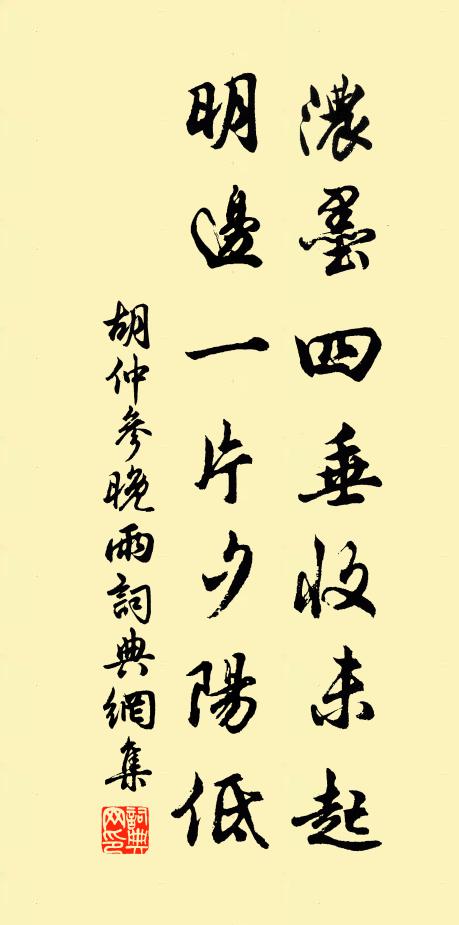 濃墨四垂收未起
明邊一片夕陽低
胡仲參晚雨詞典網集
詞典网印